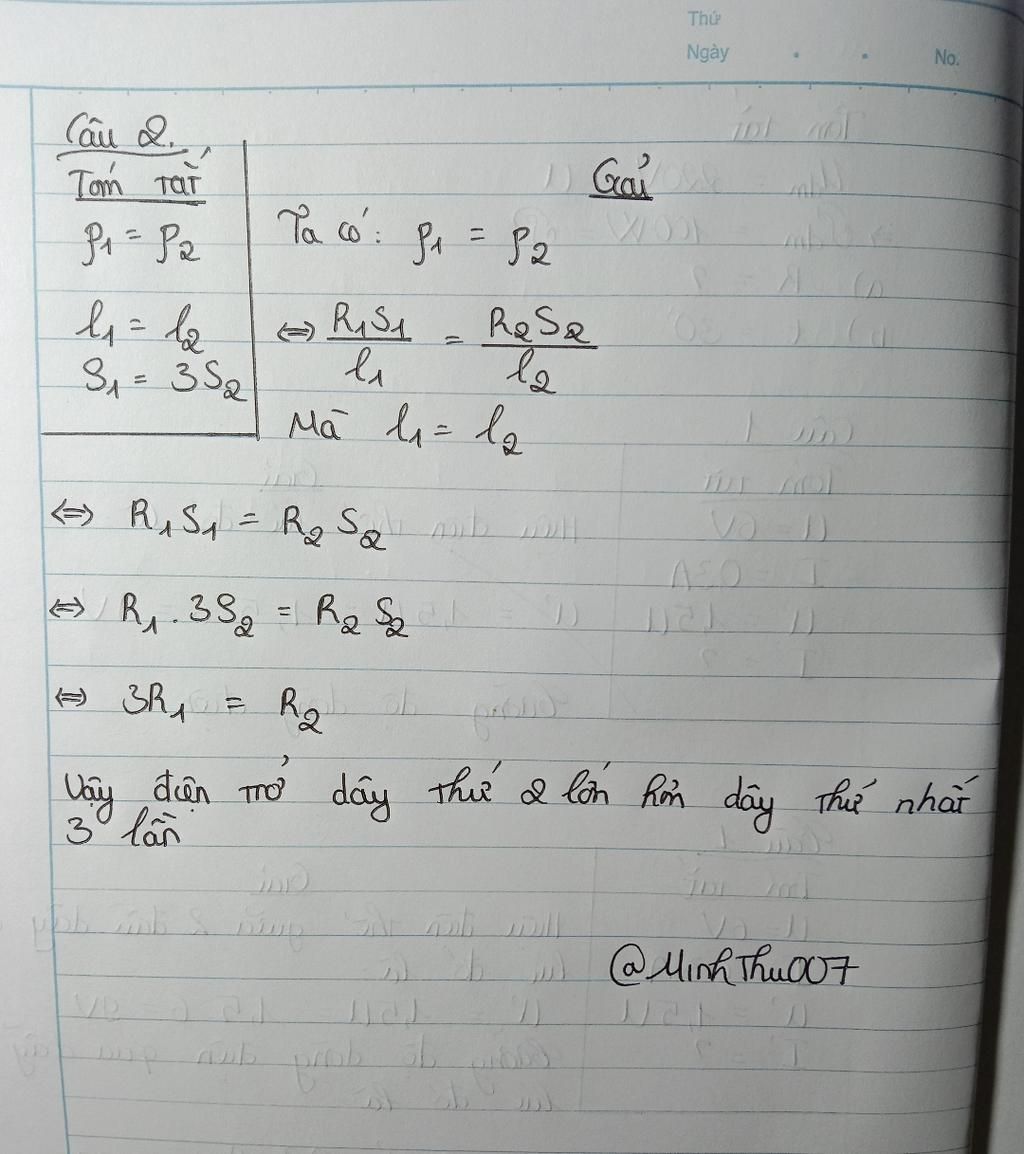 Thứ
Ngày . . No.
Câu 2.
Tóm tắt
ρ1 = ρ2
l1 = l2
S1 = 3S2
Giải
Ta có: ρ1 = ρ2
⇔ R1S1/l1 = R2S2/l2
Mà l1 = l2
⇔ R1S1 = R2S2
⇔ R1.3S2 = R2S2
⇔ 3R1 = R2
Vậy điện trở dây thứ 2 lớn hơn dây thứ nhất
3 lần
@MinhThu007